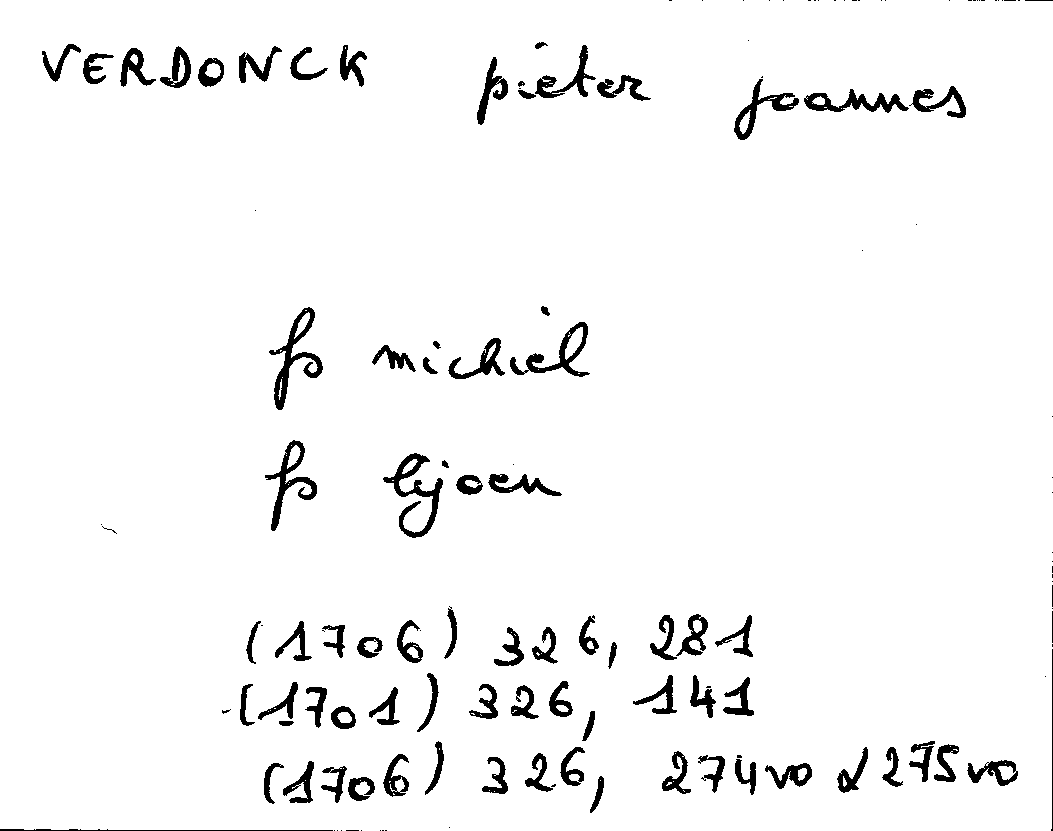 VERDONCK pieter joannes
fs michiel
fs lijoen
(1706) 326, 281
(1701) 326, 141
(1706) 326, 274vo & 275vo